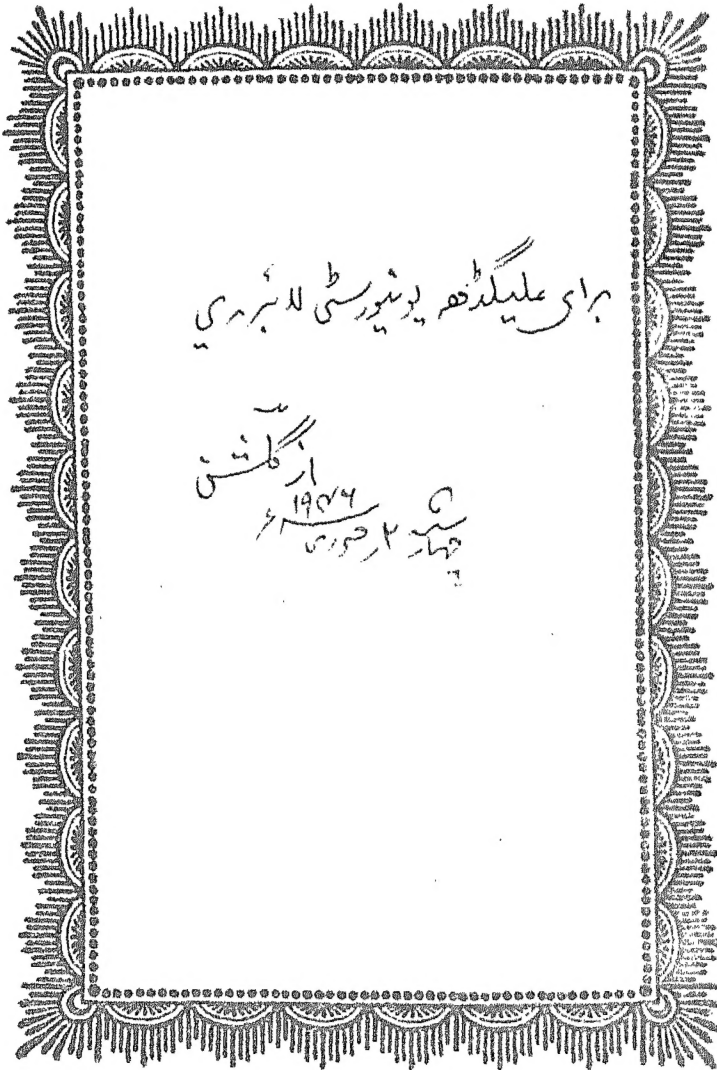 برای علیگڈھه یونیورسٹی لائبرری
از گلشن
چهارشنبه ۲ر جنوری ۱۹۴۶ء